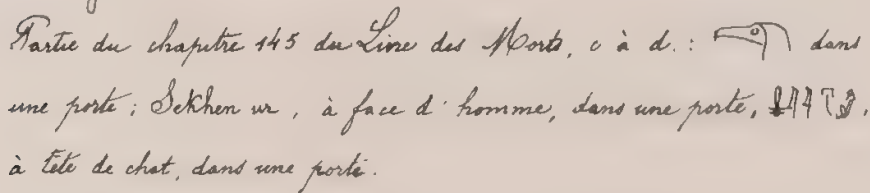 Partie du chapitre 145 du Livre des Morts, c à d. : dans
une porte ; Sekhen ur, à face d'homme, dans une porte,
à tête de chat, dans une porte.